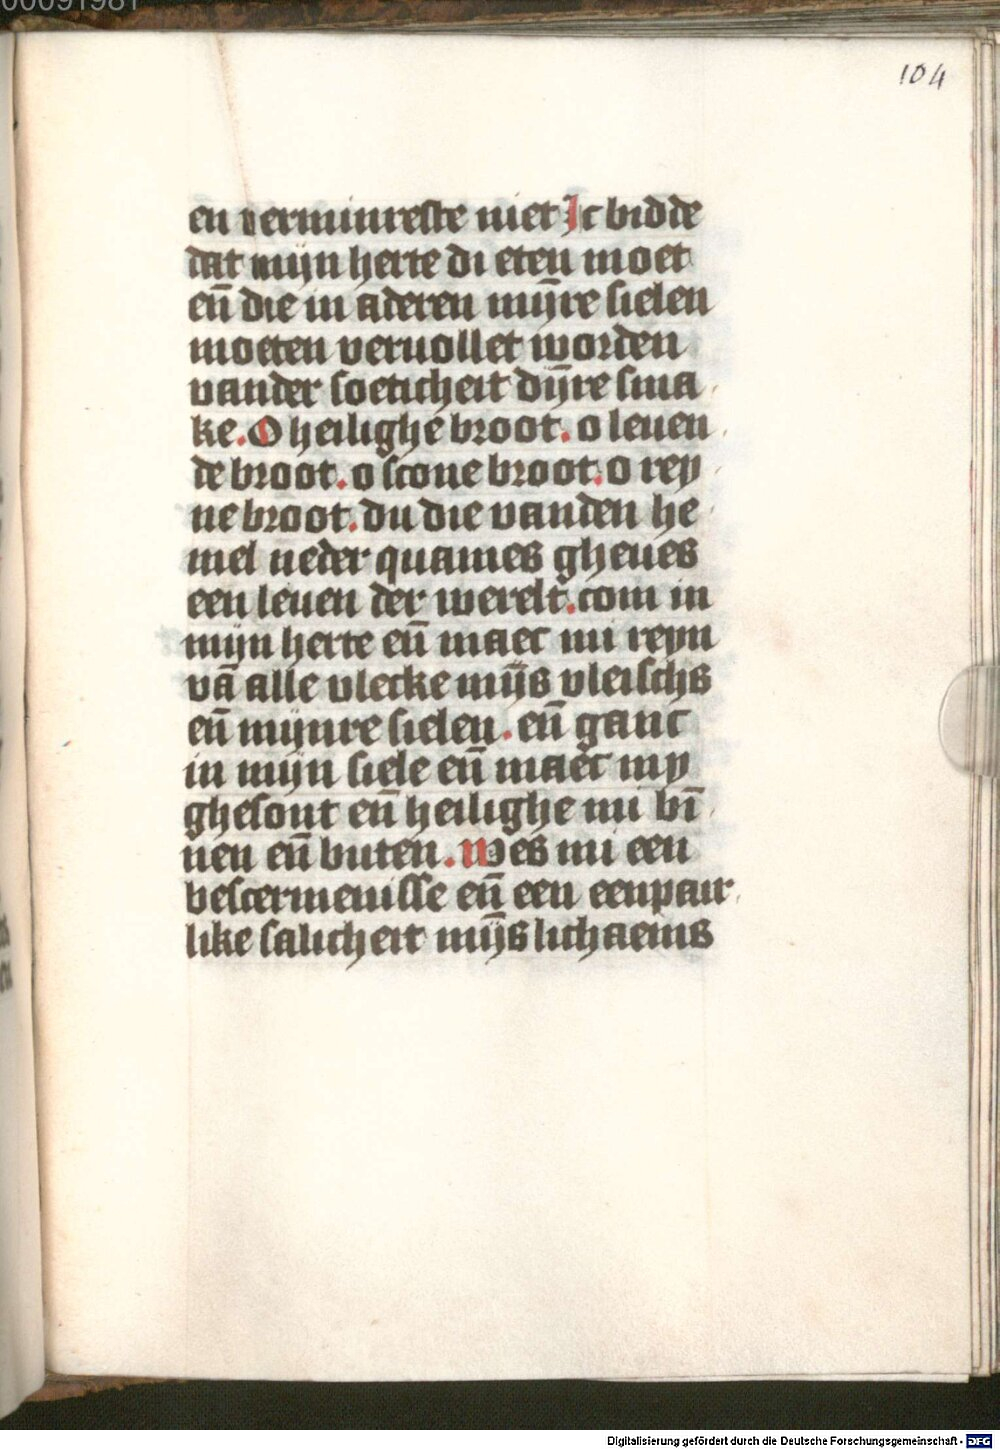 104
en verminreste niet Ic bidde
dat mijn herte di eten moet
en̄ die in aderen mȳre sielen
moeten veruollet worden
vander soeticheit dȳre sma
ke. O heilighe broot. o leuen
de broot. o scone broot. o rey
ne broot. du die vanden he
mel neder quames gheues
een leuen der werelt. com in
mijn herte en̄ maec mi reyn
vā alle vlecke mijs vleischs
en̄ mijnre sielen. en̄ ganc
in mijn siele en̄ maec my
ghesont en̄ heilighe mi bī
nen en̄ buten. Wes mi een
bescermenisse en̄ een eenpaer
like salicheit mijs lichaems
Digitalisierung gefördert durch die Deutsche Forschungsgemeinschaft - DFG